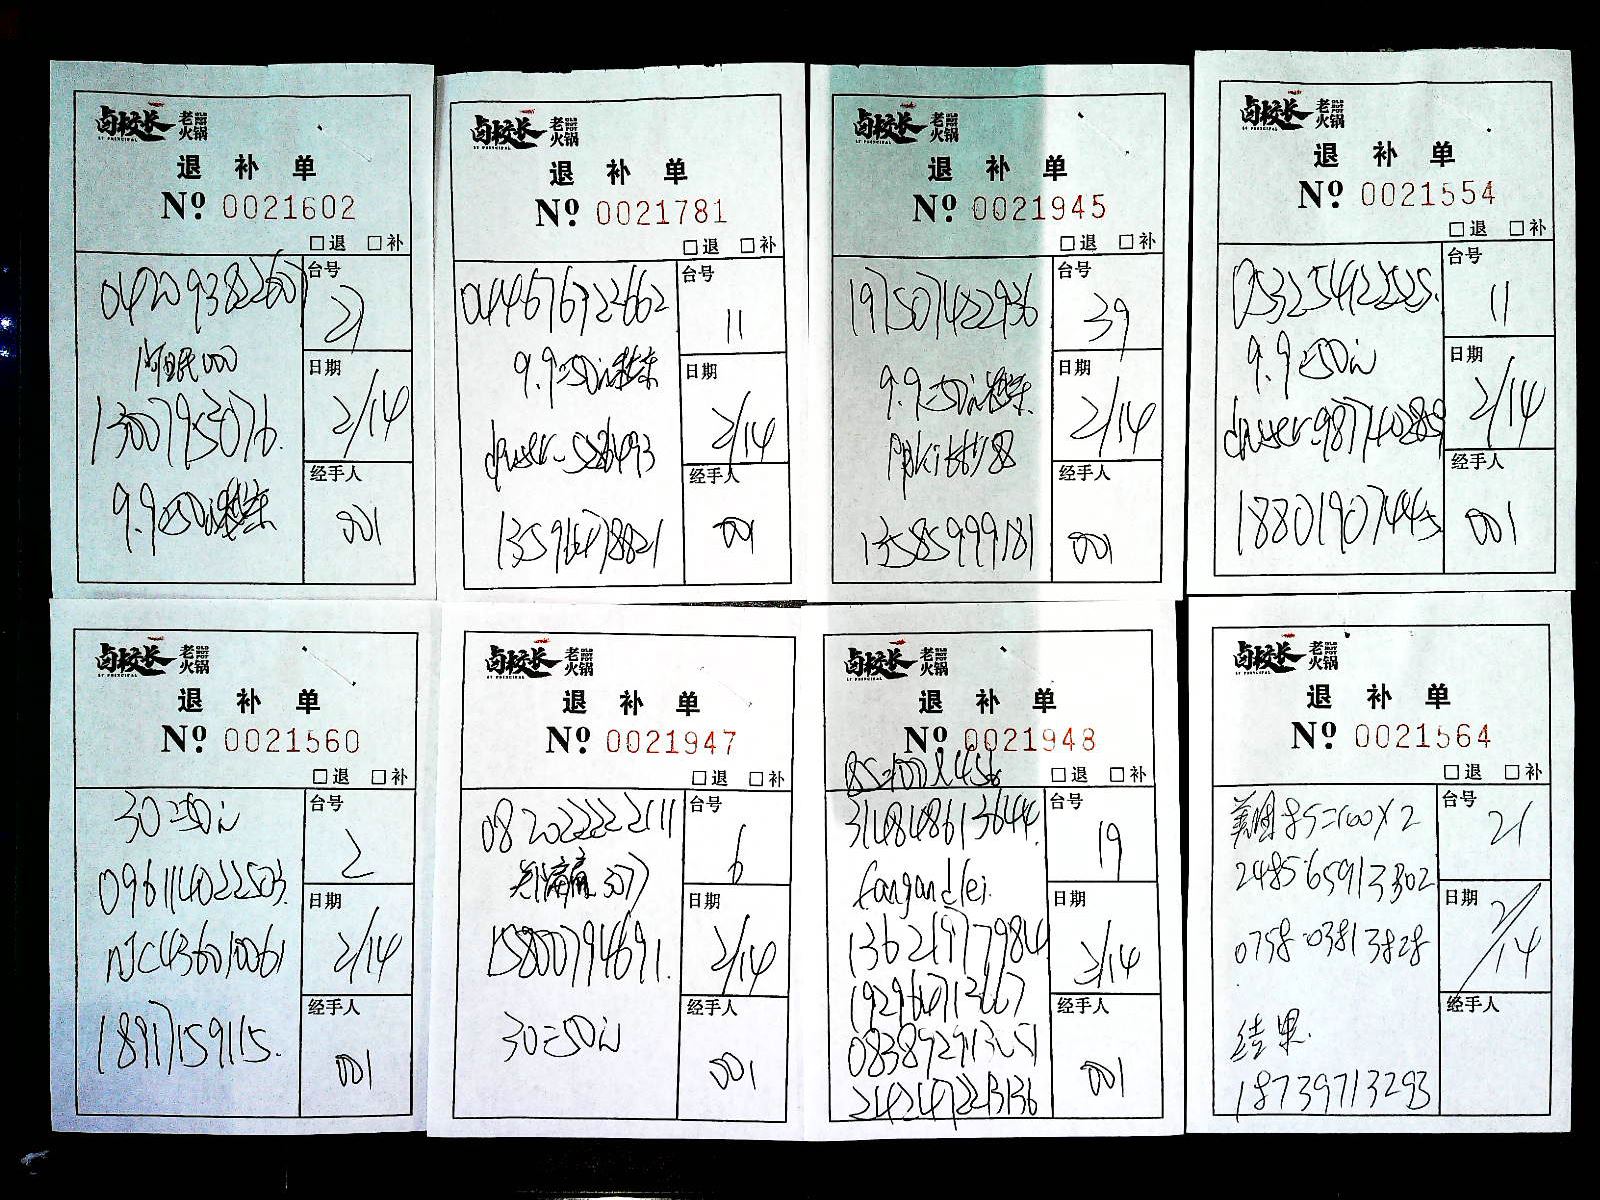 卤校长 老火锅
LU PRINCIPAL
退 补 单
Nº 0021602
□退 □补
台号
27
日期
2/14
经手人
001
9.9=50
卤校长 老火锅
LU PRINCIPAL
退 补 单
Nº 0021781
□退 □补
044676723662
台号
11
9.9=50
日期
2/14
经手人
001
卤校长 老火锅
LU PRINCIPAL
退 补 单
Nº 0021945
□退 □补
197507422936
台号
39
9.9=50
日期
2/14
13585999181
经手人
001
卤校长 老火锅
LU PRINCIPAL
退 补 单
Nº 0021554
□退 □补
053254122525.
台号
11
9.9=50
日期
2/14
18801907445
经手人
001
卤校长 老火锅
LU PRINCIPAL
退 补 单
Nº 0021560
□退 □补
30=50
台号
2
096114022503.
日期
2/14
njc436010061
18917159115.
经手人
001
卤校长 老火锅
LU PRINCIPAL
退 补 单
Nº 0021947
□退 □补
082022222111
台号
6
15800794691.
日期
2/14
30=50
经手人
001
卤校长 老火锅
LU PRINCIPAL
退 补 单
Nº 0021948
□退 □补
85=100X
314848613644.
台号
19
fangandlei.
13621977984
日期
2/14
192964713667
083892913051
242472213136
经手人
001
卤校长 老火锅
LU PRINCIPAL
退 补 单
Nº 0021564
□退 □补
美团85=100X2
台号
21
248565913302
日期
2/14
0758 03813828
结果.
18739713293
经手人